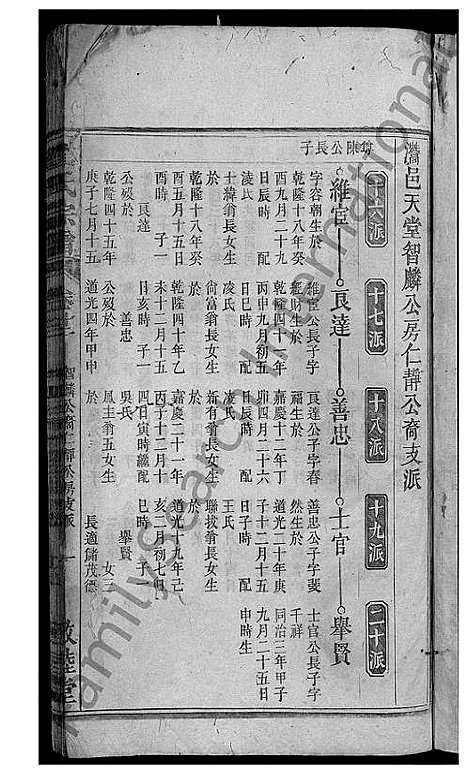 灊邑天堂智麟公房仁靜公裔支派
十六派 十七派 十八派 十九派 二十派
翁陳公長子
維宦 良達 善忠 士官 舉賢
字容朝生於
乾隆十八年癸
酉九月二十九
日辰時 配
凌氏
士緯翁長女生
於
乾隆十八年癸
酉五月十五日
酉時 子一
良達
公歿於
乾隆四十五年
庚子七月十五
維宦公長子字
生於
乾隆四十一年
丙申九月初五
日巳時 配
凌氏
尚富翁長女生
於
乾隆四十年乙
未十二月十五
日亥時 子一
善忠
公歿於
道光四年甲申
良達公子字春
福生於
嘉慶十二年丁
卯四月二十六
日子時 配
凌氏
新有翁長女生
於
嘉慶二十一年
丙子十二月十
四日寅時繼配
吳氏
鳳主翁五女生
於
善忠公子字斐
然生於
道光二十年庚
子十二月十五
日子時 配
王氏
聯拔翁長女生
於
道光十九年己
亥二月初七日
巳時 子一
舉賢
女三
長適儲茂德
士官公長子字
千祥
同治三年甲子
九月二十五日
申時生
氏宗譜
智麟公裔仁靜公房支派 一
敦睦堂
familysearch International